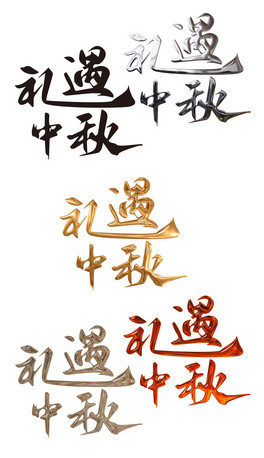 礼遇
中秋
礼遇
中秋
礼遇
中秋
礼遇
中秋
礼遇
中秋